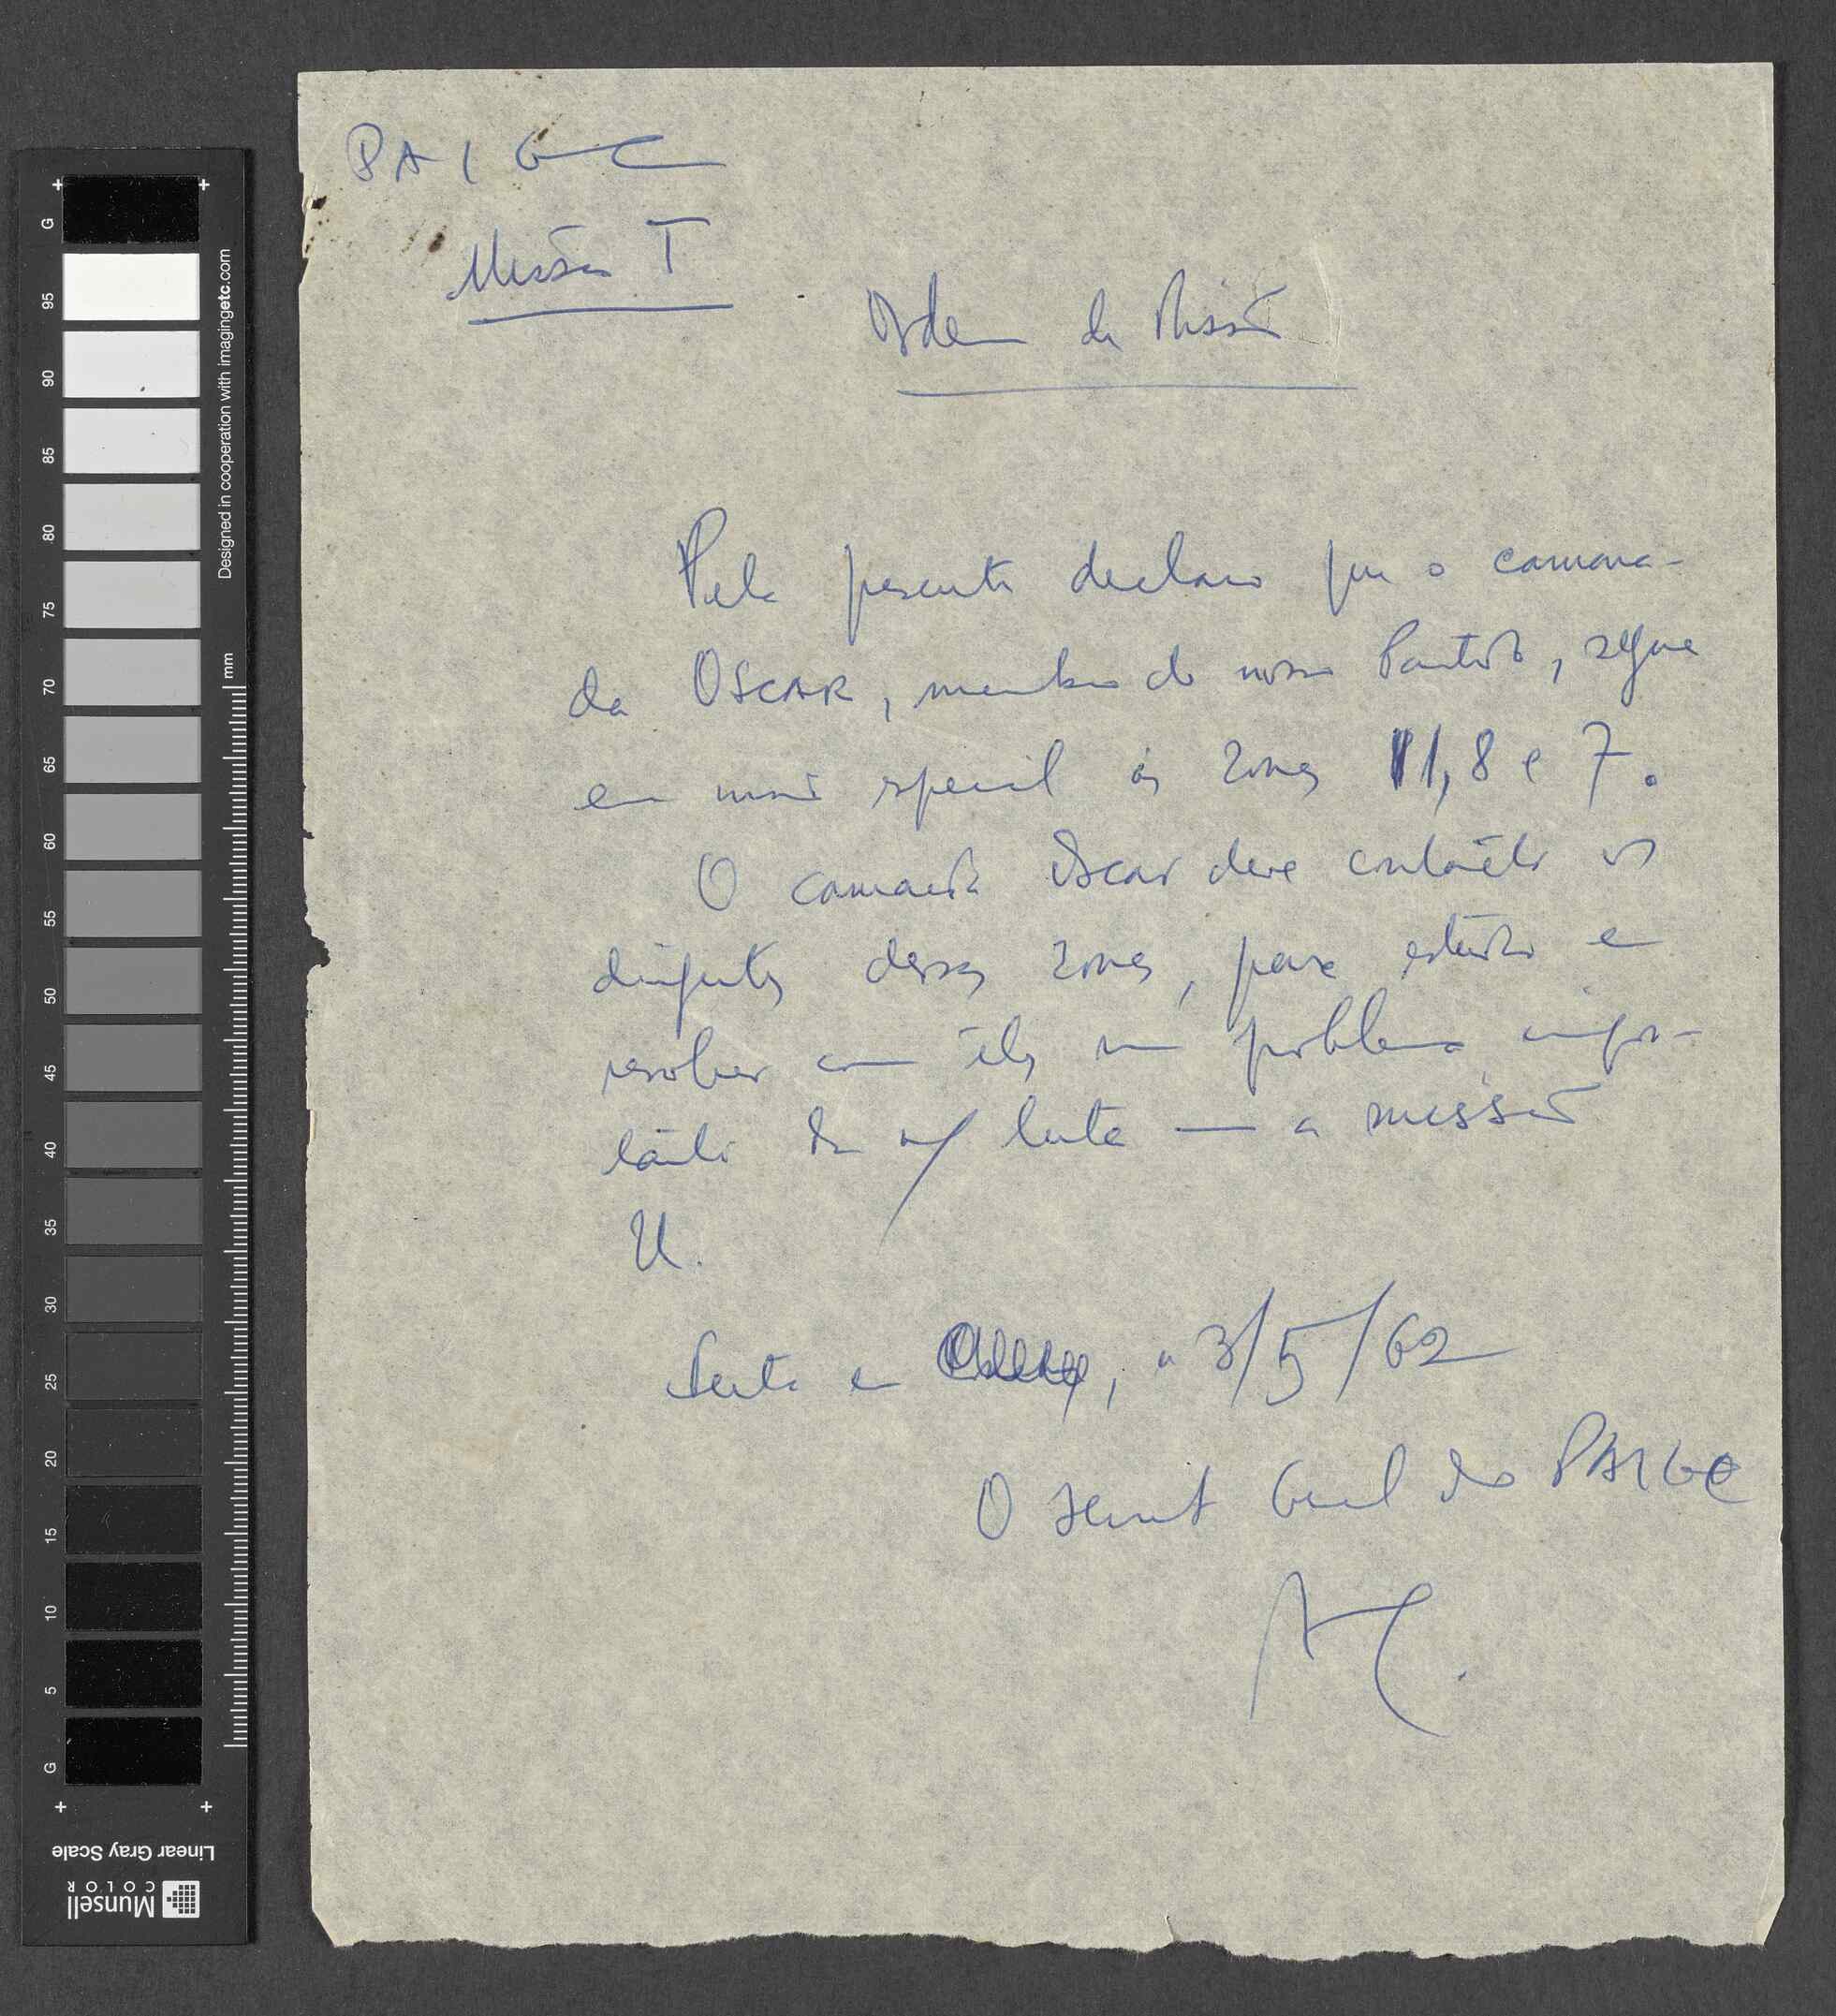 PAIGC
Missão T
Ordem de Missão
Pela presente declaro que o camara-
da OSCAR, membro do nosso Partido, segue
em missão especial às zonas 11, 8 e 7.
O camarada Oscar deve contactar os
dirigentes dessas zonas, para estudar e
resolver com êles um problema impor-
tante da n/ luta — a missão
U.
Feita em , a 3/5/62
O Secret Geral do PAIGC
AC.
G
95
90
85
80
75
70
65
60
55
50
45
40
35
30
25
20
15
10
5
G
mm
Designed in cooperation with imagingetc.com
Linear Gray Scale
Munsell
COLOR